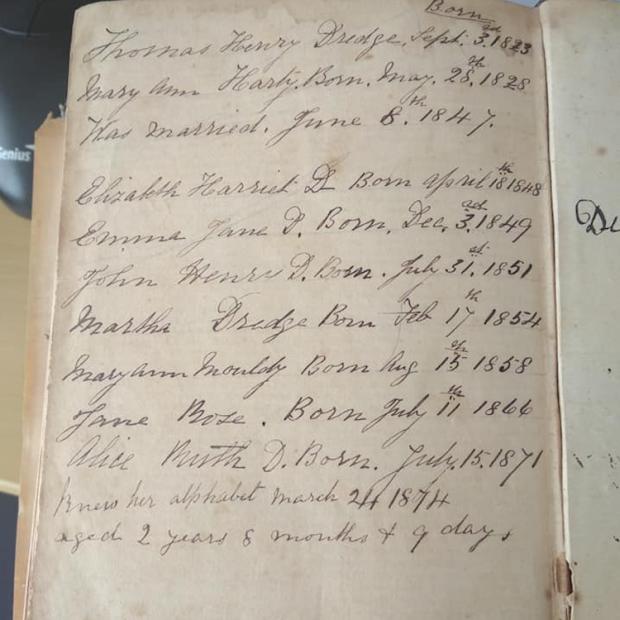 Born
Thomas Henry Dredge, Sept. 3.rd 1823
Mary Ann Harty. Born. May. 28.th 1828
Was married. June 8.th 1847.
Elizabeth Harriet D Born April 18th 1848
Emma Jane D. Born, Dec, 3.rd 1849
John Henry D. Born. July 31.st 1851
Martha Dredge Born Feb 17th 1854
Maryann Mouldy Born Aug 15th 1858
Jane Rose. Born July 11th 1866
Alice Ruth D. Born. July, 15. 1871
Knew her alphabet March 24 1874
aged 2 years 8 months & 9 days
enius